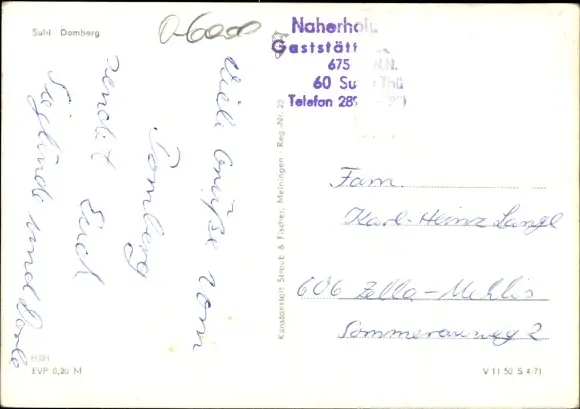 Suhl Domberg
0-6000
Naherhol
Gaststätt
675 N.N.
60 Su Thü
Telefon 28
Viele Grüße vom
Domberg
sendet Euch
Sieglinde und
Kunstanstalt Straub & Fischer, Meiningen · Reg.-Nr. 29
Fam.
Karl-Heinz Langl
606 Zella-Mehlis
Sommerauweg 2
EVP 0,20 M
V 11 50 S 4/71